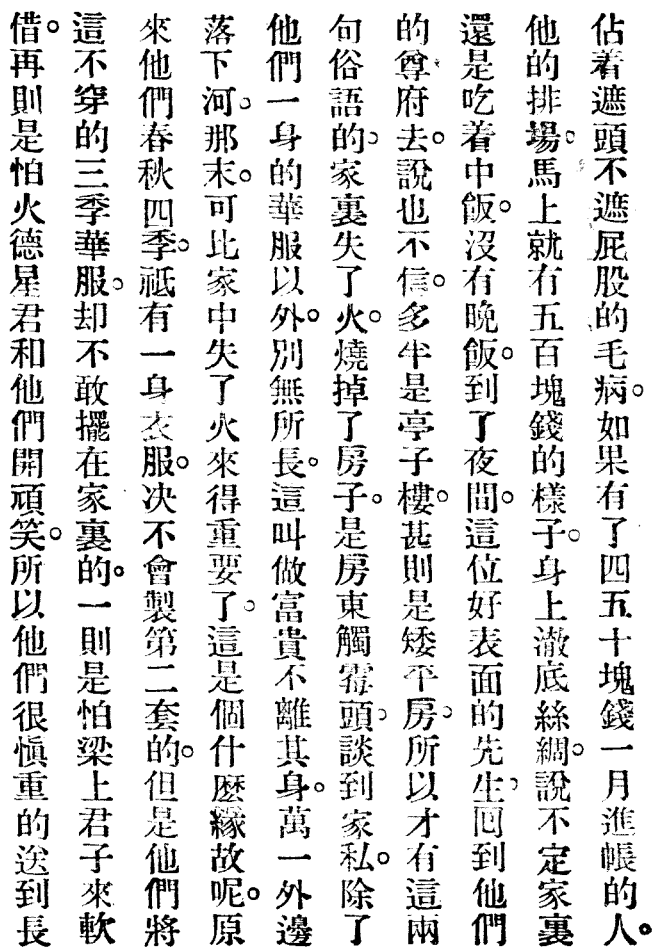 佔着遮頭不遮屁股的毛病。如果有了四五十塊錢一月進帳的人。
他的排場。馬上就有五百塊錢的樣子。身上澈底絲綢。說不定家裏
還是吃着中飯。沒有晚飯。到了夜間。這位好表面的先生。回到他們
的尊府去。說也不信。多半是亭子樓。甚則是矮平房。所以才有這兩
句俗語的。家裏失了火。燒掉了房子。是房東觸霉頭。談到家私。除了
他們一身的華服以外。別無所長。這叫做富貴不離其身。萬一外邊
落下河。那末。可比家中失了火來得重要了。這是個什麽緣故呢。原
來他們春秋四季。祗有一身衣服。决不會製第二套的。但是他們將
這不穿的三季華服。却不敢擺在家裏的。一則是怕梁上君子來軟
借。再則是怕火德星君和他們開頑笑。所以他們很愼重的送到長